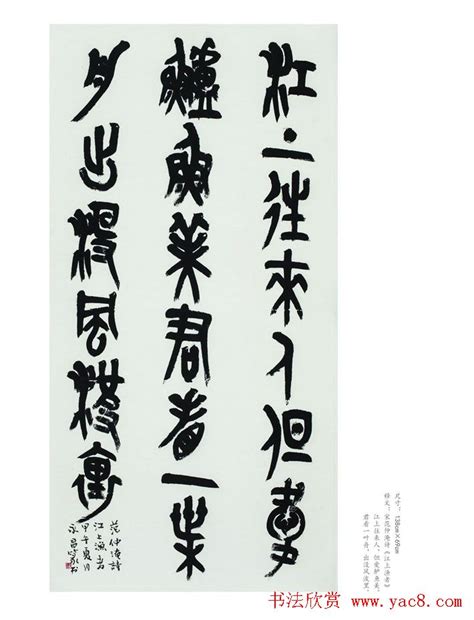 江上往來人但愛
鱸魚美君看一葉
舟出没風波裏
范仲淹詩
江上漁者
甲午夏月
永昌
尺寸：138cm×69cm
释文：宋范仲淹诗《江上渔者》
江上往来人，但爱鲈鱼美。
君看一叶舟，出没风波里。
书法欣赏 www.yac8.com